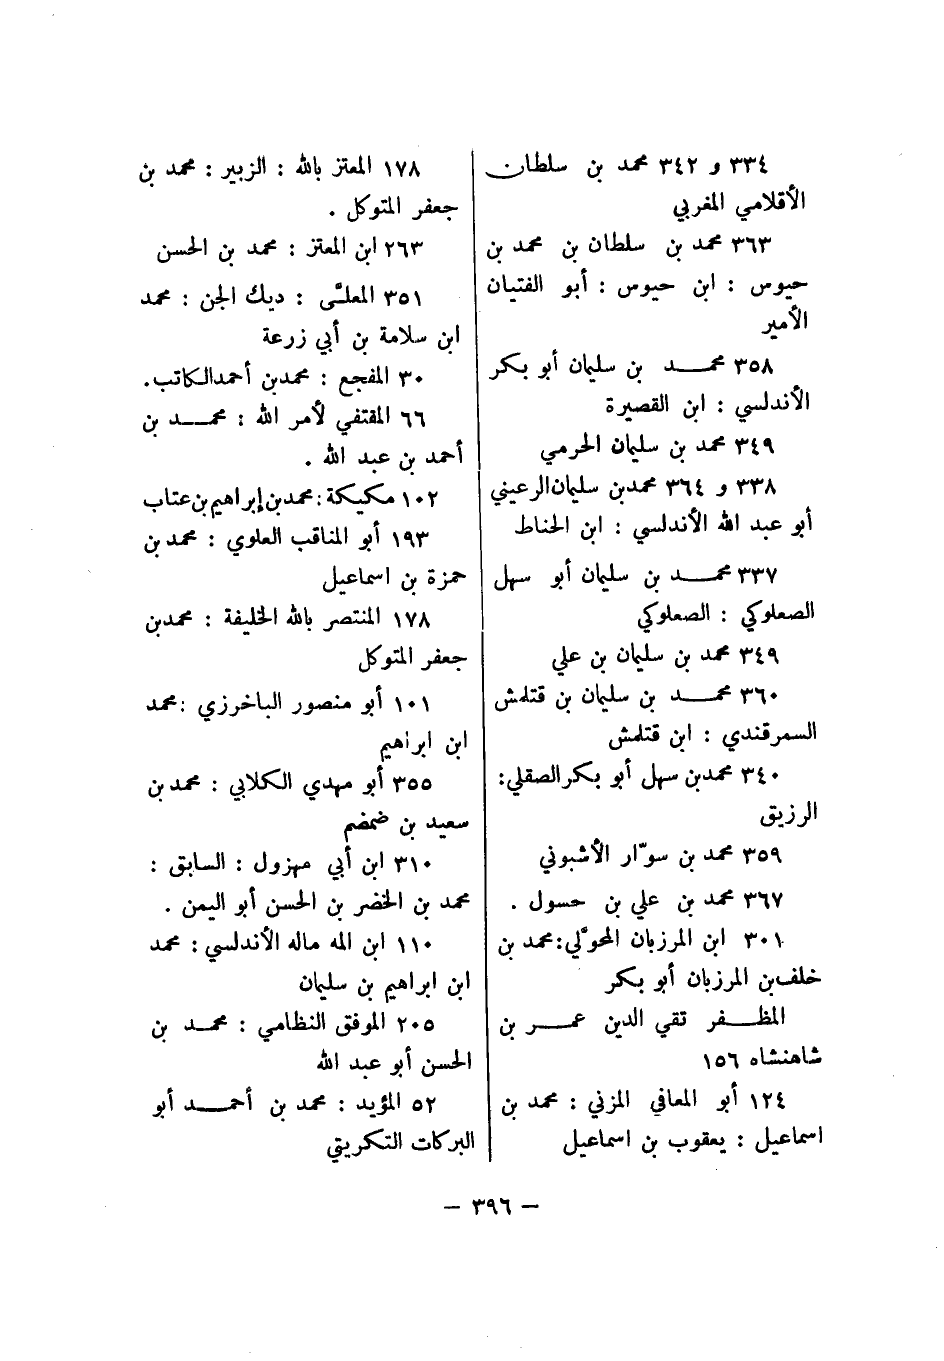 ٣٣٤ و ٣٤٢ محمد بن سلطان
الأقلامي المغربي
٣٦٣ محمد بن سلطان بن محمد بن
حيوس : ابن حيوس : أبو الفتيان
الأمير
٣٥٨ محمد بن سليمان أبو بكر
الأندلسي : ابن القصيرة
٣٤٩ محمد بن سليمان الحرمي
٣٣٨ و ٣٦٤ محمد بن سليمان الرعيني
أبو عبد الله الأندلسي : ابن الحناط
٣٣٧ محمد بن سليمان أبو سهل
الصعلوكي : الصعلوكي
٣٤٩ محمد بن سليمان بن علي
٣٦٠ محمد بن سليمان بن قتلمش
السمرقندي : ابن قتلمش
٣٤٠ محمد بن سهل أبو بكر الصقلي :
الرزيق
٣٥٩ محمد بن سوّار الأشبوني
٣٦٧ محمد بن علي بن حسول .
٣٠١ ابن المرزبان المحوّلي : محمد بن
خلف بن المرزبان أبو بكر
المظفر تقي الدين عمر بن
شاهنشاه ١٥٦
١٢٤ أبو المعافي المزني : محمد بن
اسماعيل : يعقوب بن اسماعيل
١٧٨ المعتز بالله : الزبير : محمد بن
جعفر المتوكل .
٢٦٣ ابن المعتز : محمد بن الحسن
٣٥١ المعلّى : ديك الجن : محمد
ابن سلامة بن أبي زرعة
٣٠ المفجع : محمد بن أحمد الكاتب .
٦٦ المقتفي لأمر الله : محمد بن
أحمد بن عبد الله .
١٠٢ مكيكة : محمد بن إبراهيم بن عتاب
١٩٣ أبو المناقب العلوي : محمد بن
حمزة بن اسماعيل
١٧٨ المنتصر بالله الخليفة : محمد بن
جعفر المتوكل
١٠١ أبو منصور الباخرزي : محمد
ابن ابراهيم
٣٥٥ أبو مهدي الكلابي : محمد بن
سعيد بن ضمضم
٣١٠ ابن أبي مهزول : السابق :
محمد بن الخضر بن الحسن أبو اليمن .
١١٠ ابن المه ماله الأندلسي : محمد
ابن ابراهيم بن سليمان
٢٠٥ الموفق النظامي : محمد بن
الحسن أبو عبد الله
٥٢ المؤيد : محمد بن أحمد أبو
البركات التكريتي
— ٣٩٦ —